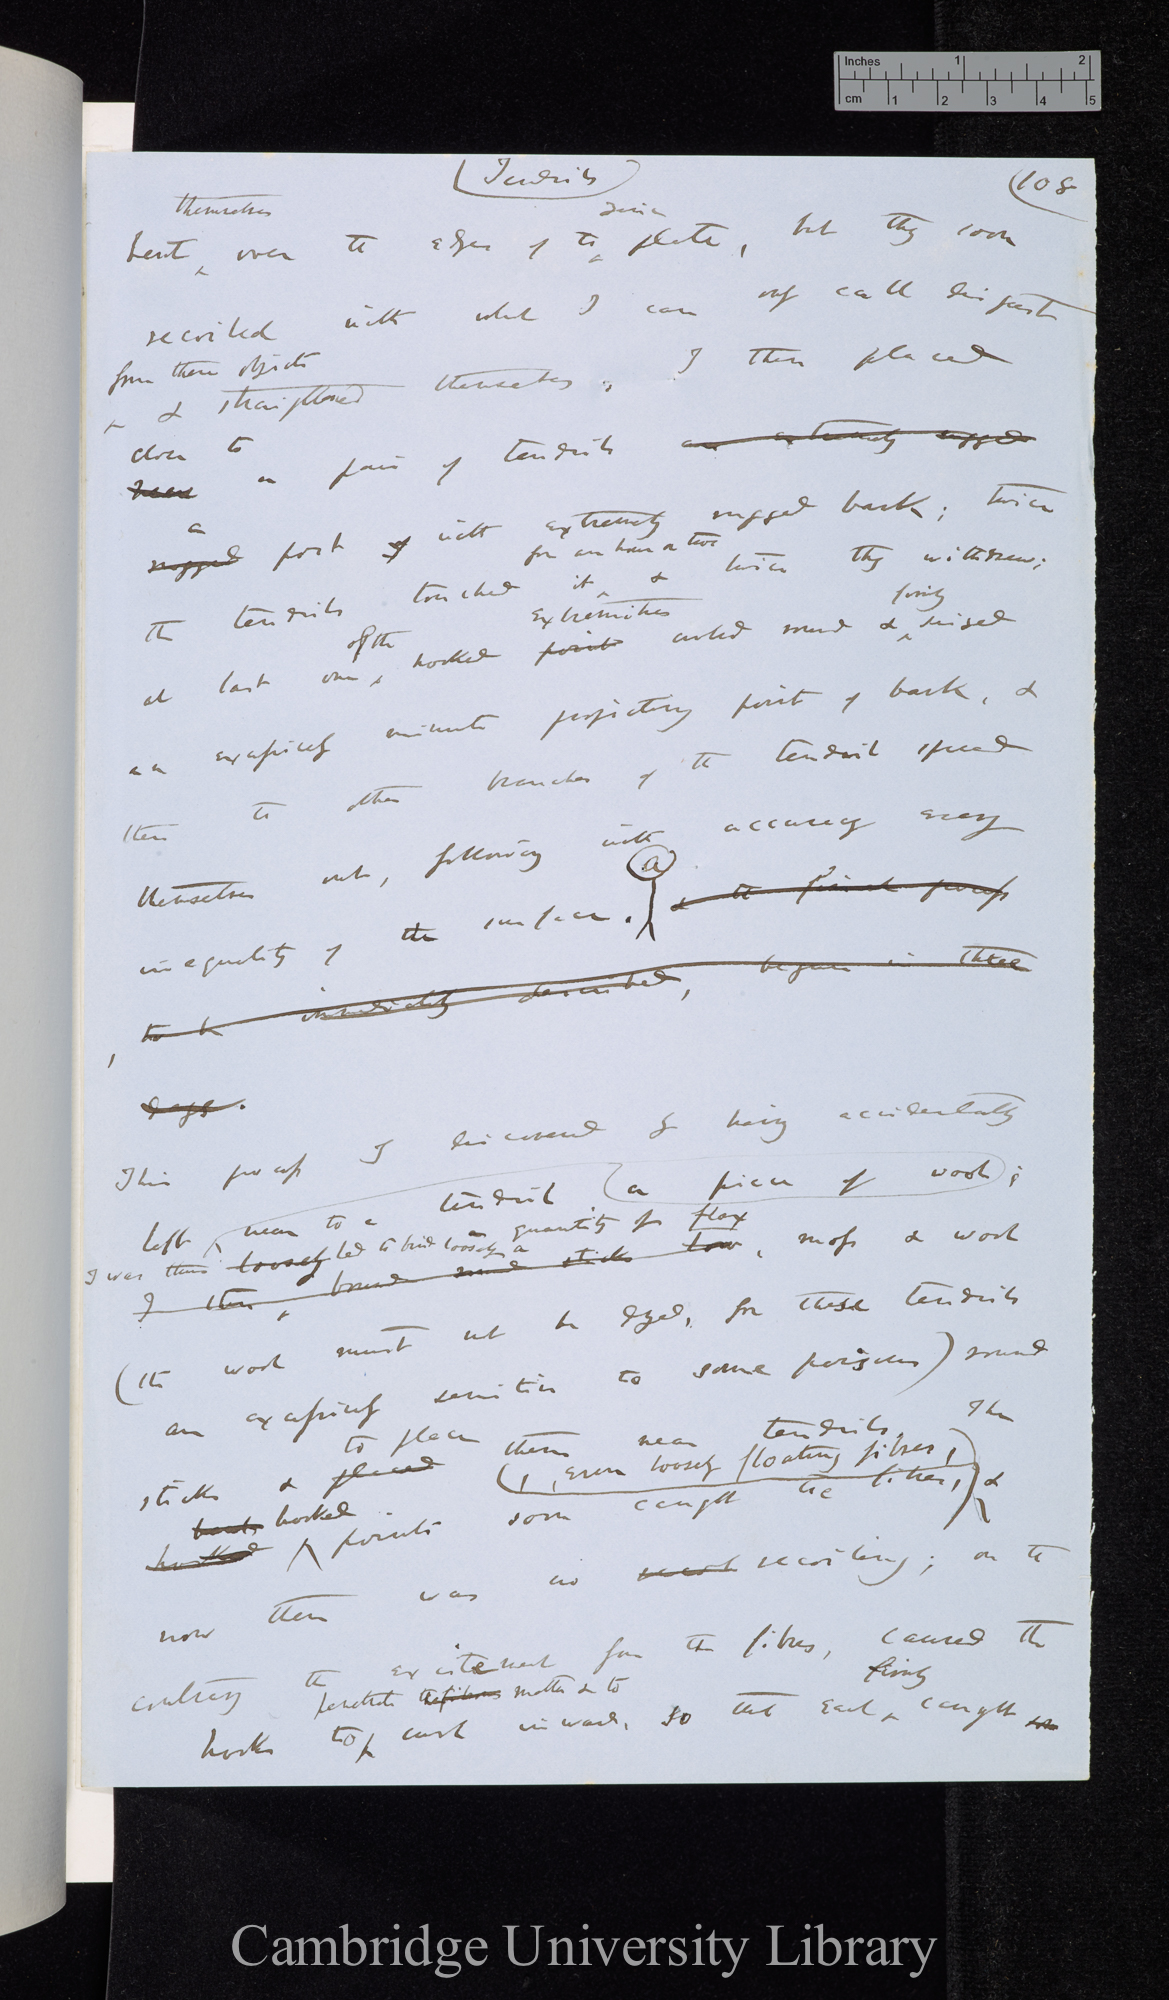 Inches 1 2
cm 1 2 3 4 5
(Tendrils) (108
themselves zinc
bent over the edges of the plate, but they soon
recoiled with what I can only call disgust
from these objects
& straightened themselves. I then placed
close to
a pair of tendrils an extremely rugged
a
rugged post with extremely rugged bark; twice
for an hour or two
the tendrils touched it & twice they withdrew;
of the extremities firmly
at last one hooked points curled round & seized
an excessively minute projecting point of bark, &
then the other branches of the tendril spread
themselves out, following with accuracy every
(a)
inequality of the surface. & the process
to be immediately described, begun in three
days.
This process I discovered by having accidentally
left near to a tendril (a piece of wool;
I was thus loosely led to bind loosely a quantity of flax
I then bound round sticks tow, moss & wool
(the wool must not be dyed, for these tendrils
are excessively sensitive to some poisons) round
to place
sticks & placed them near tendrils. The
(, even loosely floating fibres,)
hooked
hooked points soon caught the fibres, &
now there was no recoiling; on the
contrary the excitement from the fibres, caused the
penetrate the fibrous matter & to firmly
hooks to curl inward, so that each caught
Cambridge University Library